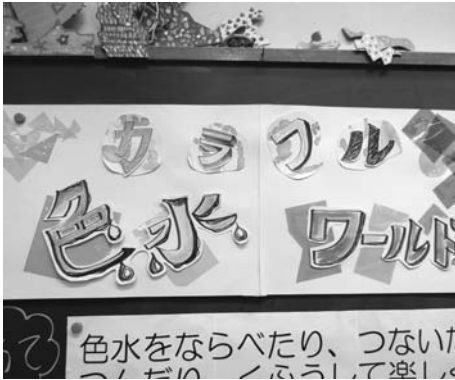 カラフル
色水 ワールド
て
色水をならべたり、つないだ
つんだり、くふうして楽し